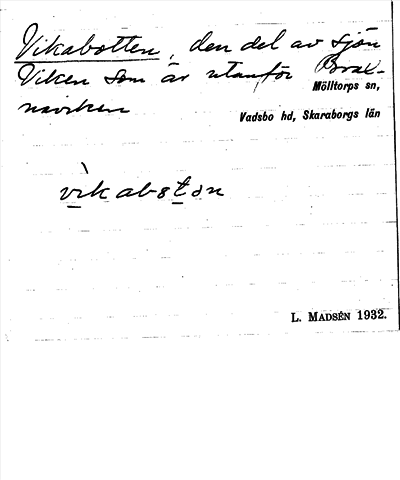 Vikabotten, den del av sjön
Viken som är utanför Brax-
naviken
Mölltorps sn,
Vadsbo hd, Skaraborgs län
L. MADSÉN 1932.